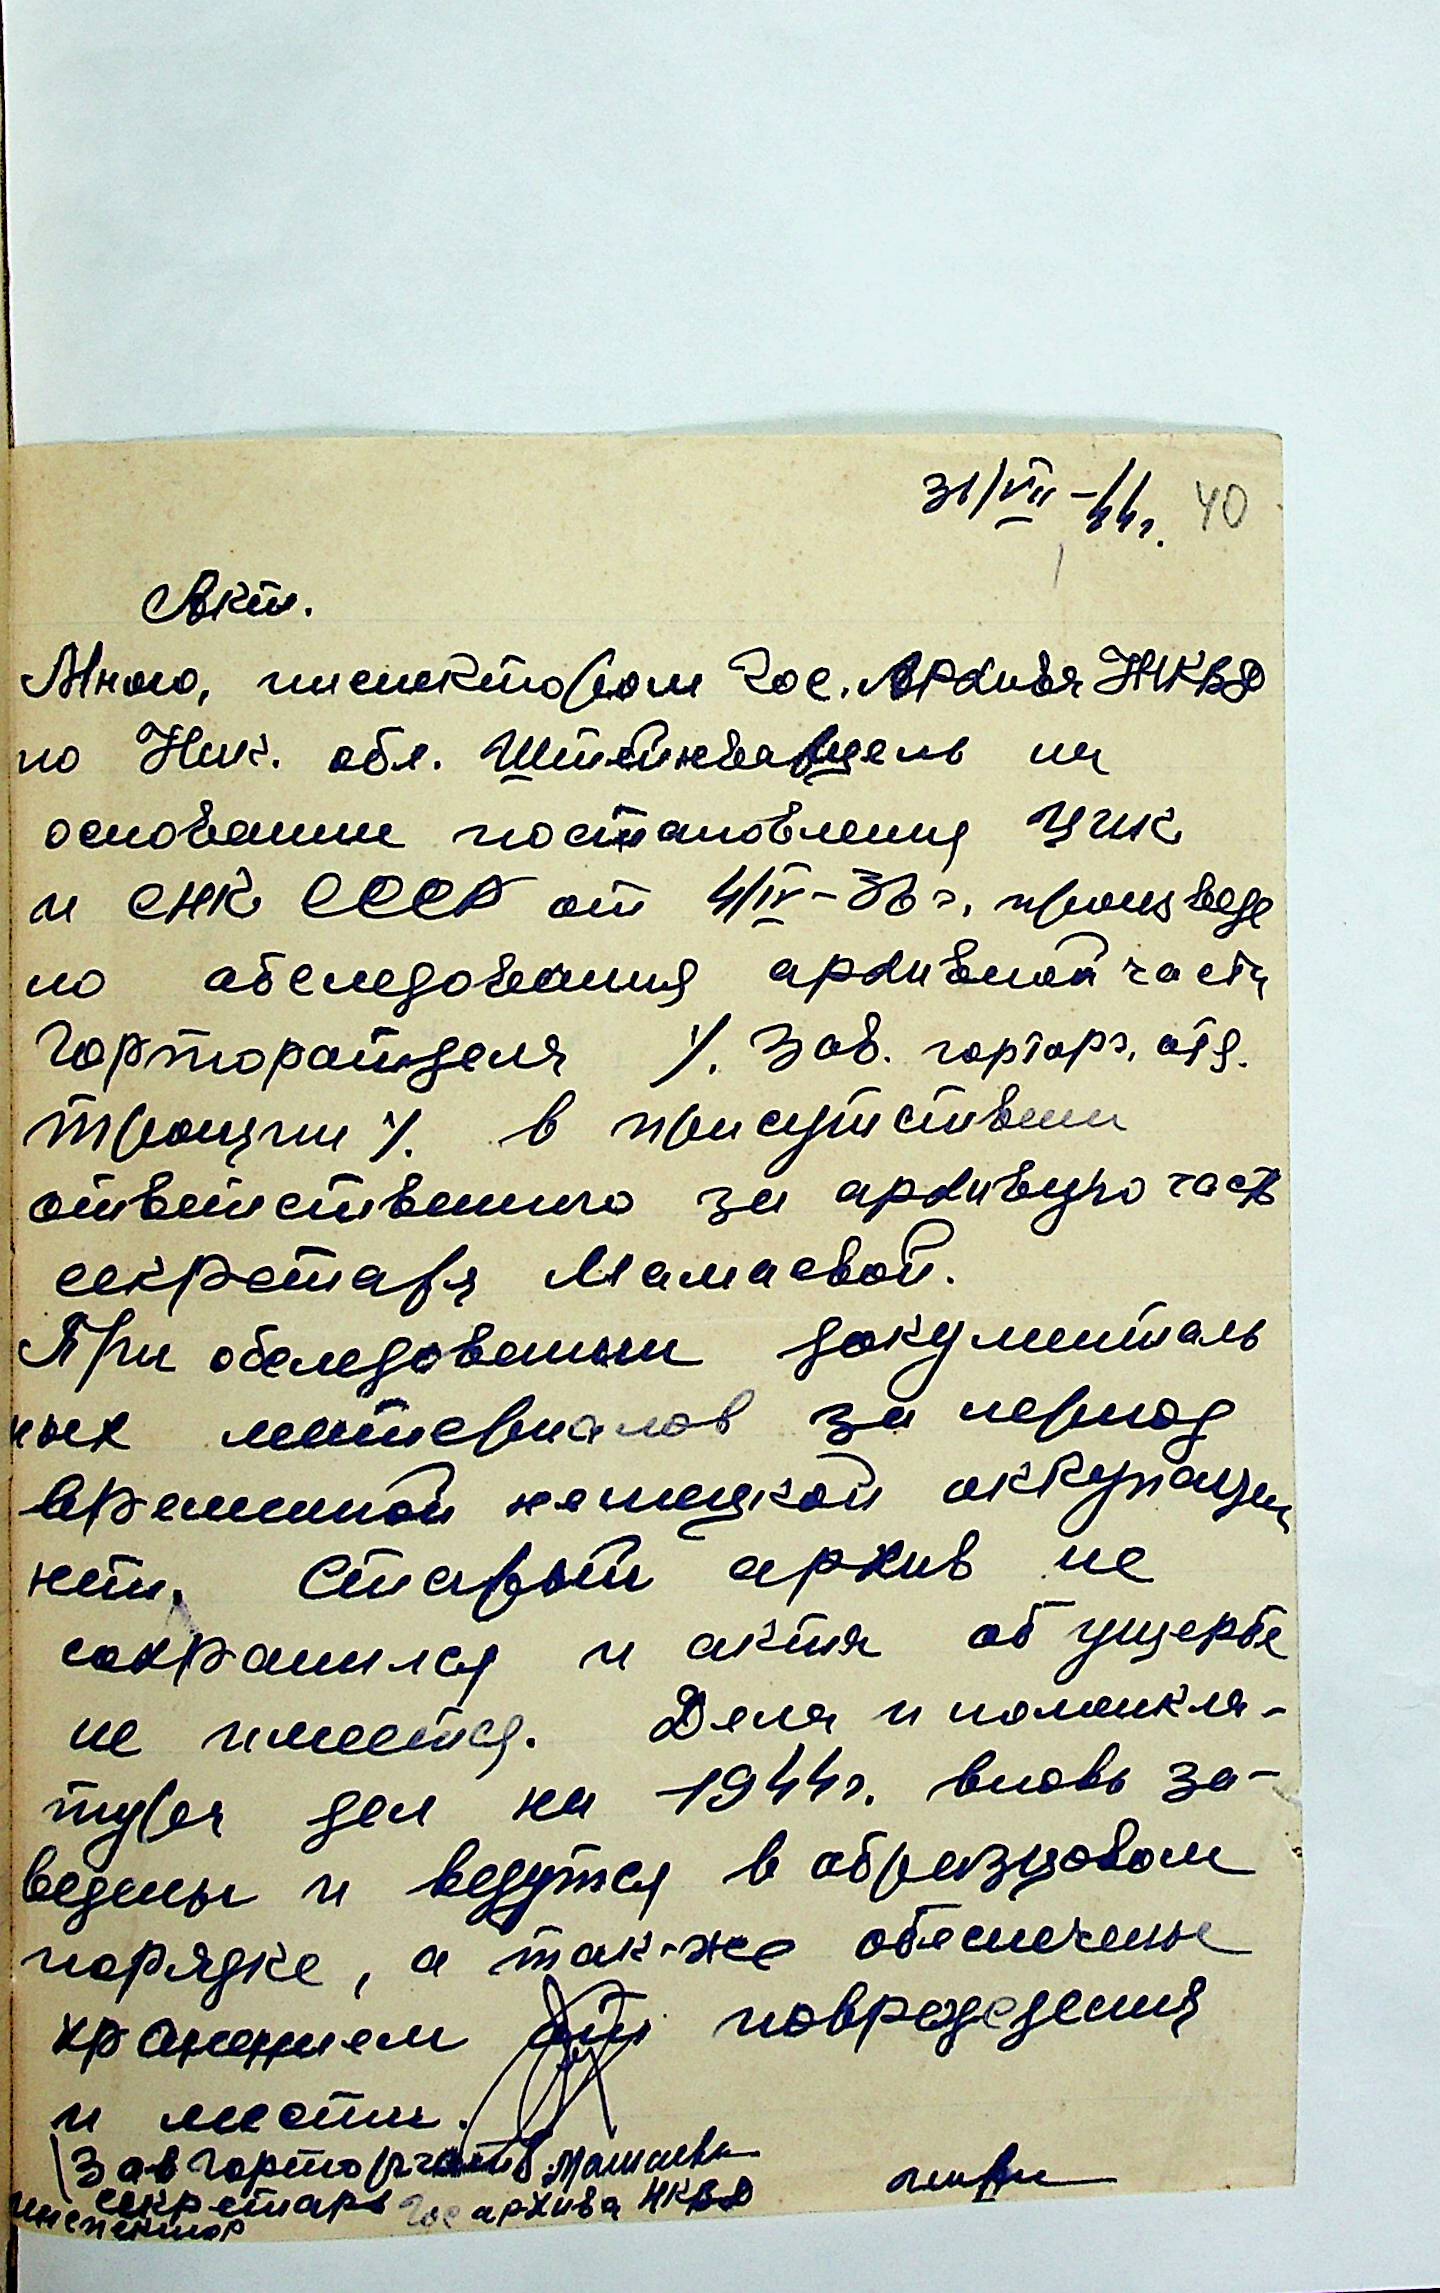 31/VII-44г. 40
Акт.
Мною, инспектором Гос. Архива НКВД
по Ник. обл. на
основании постановления ЦИК
и СНК СССР от 4/IV-36 г. произведе
но обследования архивной части
Горторготдела /. Зав. горторг. отд.
/. в присутствии
ответственного за архивную часть
секретаря Мамаевой.
При обследовании документаль
ных материалов за период
временной немецкой оккупации
нет. Старый архив не
сохранился и акта об ущербе
не имеется. Дела и номенкла-
тура дел на 1944г. вновь за-
ведены и ведутся в образцовом
порядке, а так-же обеспечены
хранением от повреждения
и мести.
Зав Горторг Мамаева
секретарь
инспектор Гос архива НКВД